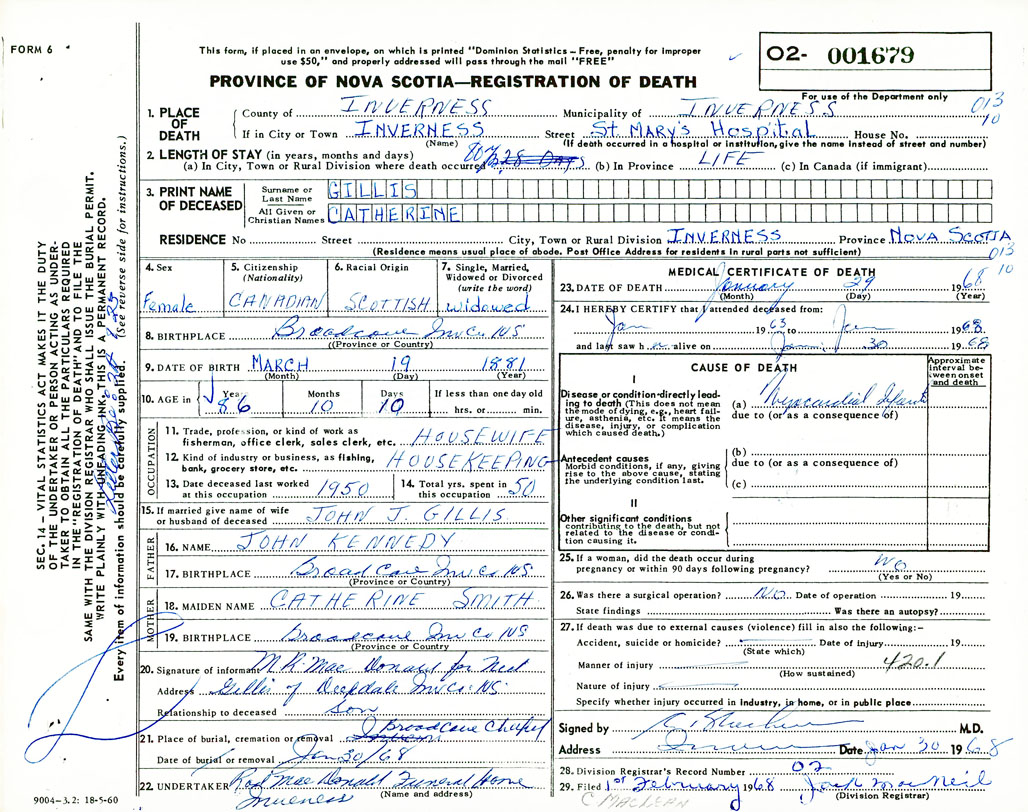 FORM 6
This form, if placed in an envelope, on which is printed "Dominion Statistics – Free, penalty for improper
use $50," and properly addressed will pass through the mail "FREE"
PROVINCE OF NOVA SCOTIA—REGISTRATION OF DEATH
02- 001679
For use of the Department only
013
10
1. PLACE OF DEATH
County of INVERNESS Municipality of INVERNESS
If in City or Town INVERNESS Street St. MARY'S Hospital House No.
(Name) (If death occurred in a hospital or institution, give the name instead of street and number)
2. LENGTH OF STAY (in years, months and days)
(a) In City, Town or Rural Division where death occurred 28 Days (b) In Province LIFE (c) In Canada (if immigrant)
3. PRINT NAME OF DECEASED
Surname or Last Name GILLIS
All Given or Christian Names CATHERINE
RESIDENCE No Street City, Town or Rural Division INVERNESS Province NOVA SCOTIA
(Residence means usual place of abode. Post Office Address for residents in rural parts not sufficient)
013
10
4. Sex Female
5. Citizenship (Nationality) CANADIAN
6. Racial Origin SCOTTISH
7. Single, Married, Widowed or Divorced (write the word) Widowed
8. BIRTHPLACE Broadcove Inv Co NS
((Province or Country)
9. DATE OF BIRTH MARCH 19 1881
(Month) (Day) (Year)
10. AGE in Years 86 Months 10 Days 10 If less than one day old hrs. or min.
OCCUPATION
11. Trade, profession, or kind of work as
fisherman, office clerk, sales clerk, etc. HOUSEWIFE
12. Kind of industry or business, as fishing,
bank, grocery store, etc. HOUSEKEEPING
13. Date deceased last worked at this occupation 1950
14. Total yrs. spent in this occupation 50
15. If married give name of wife
or husband of deceased JOHN J. GILLIS
FATHER
16. NAME JOHN KENNEDY
17. BIRTHPLACE Broad Cove Inv Co NS
(Province or Country)
MOTHER
18. MAIDEN NAME CATHERINE SMITH
19. BIRTHPLACE Broadcove Inv Co NS
(Province or Country)
20. Signature of informant M. R. Mac Donald for Neil
Address Gillis of Deepdale Inv Co. NS.
Relationship to deceased Son
21. Place of burial, cremation or removal Broadcove Chapel
Date of burial or removal Jan 30/68
22. UNDERTAKER Rod Mac Donald Funeral Home
Inverness (Name and address)
9004-3.2: 18-5-60
MEDICAL CERTIFICATE OF DEATH
23. DATE OF DEATH January 29 1968
(Month) (Day) (Year)
24. I HEREBY CERTIFY that I attended deceased from:
Jan 1963 to Jan 1968
and last saw her alive on Jan 30 1968
CAUSE OF DEATH
Approximate interval between onset and death
I
Disease or condition directly leading to death (This does not mean the mode of dying, e.g., heart failure, asthenia, etc. It means the disease, injury, or complication which caused death.)
(a) Myocardial Infarct
due to (or as a consequence of)
Antecedent causes
Morbid conditions, if any, giving rise to the above cause, stating the underlying condition last.
(b)
due to (or as a consequence of)
(c)
II
Other significant conditions
contributing to the death, but not related to the disease or condition causing it.
25. If a woman, did the death occur during
pregnancy or within 90 days following pregnancy? No
(Yes or No)
26. Was there a surgical operation? No Date of operation 19
State findings Was there an autopsy?
27. If death was due to external causes (violence) fill in also the following:-
Accident, suicide or homicide? Date of injury 19
(State which)
Manner of injury 420.1
(How sustained)
Nature of injury
Specify whether injury occurred in industry, in home, or in public place
Signed by M.D.
Address Inverness Date Jan 30 1968
28. Division Registrar's Record Number 02
29. Filed 1st February 1968 Jack MacNeil
(Division Registrar)
C. MACLEAN
SEC. 14 – VITAL STATISTICS ACT MAKES IT THE DUTY
OF THE UNDERTAKER OR PERSON ACTING AS UNDER-
TAKER TO OBTAIN ALL THE PARTICULARS REQUIRED
IN THE "REGISTRATION OF DEATH" AND TO FILE THE
SAME WITH THE DIVISION REGISTRAR WHO SHALL ISSUE THE BURIAL PERMIT.
WRITE PLAINLY WITH UNFADING INK. THIS IS A PERMANENT RECORD.
Every item of information should be carefully supplied. (See reverse side for instructions.)